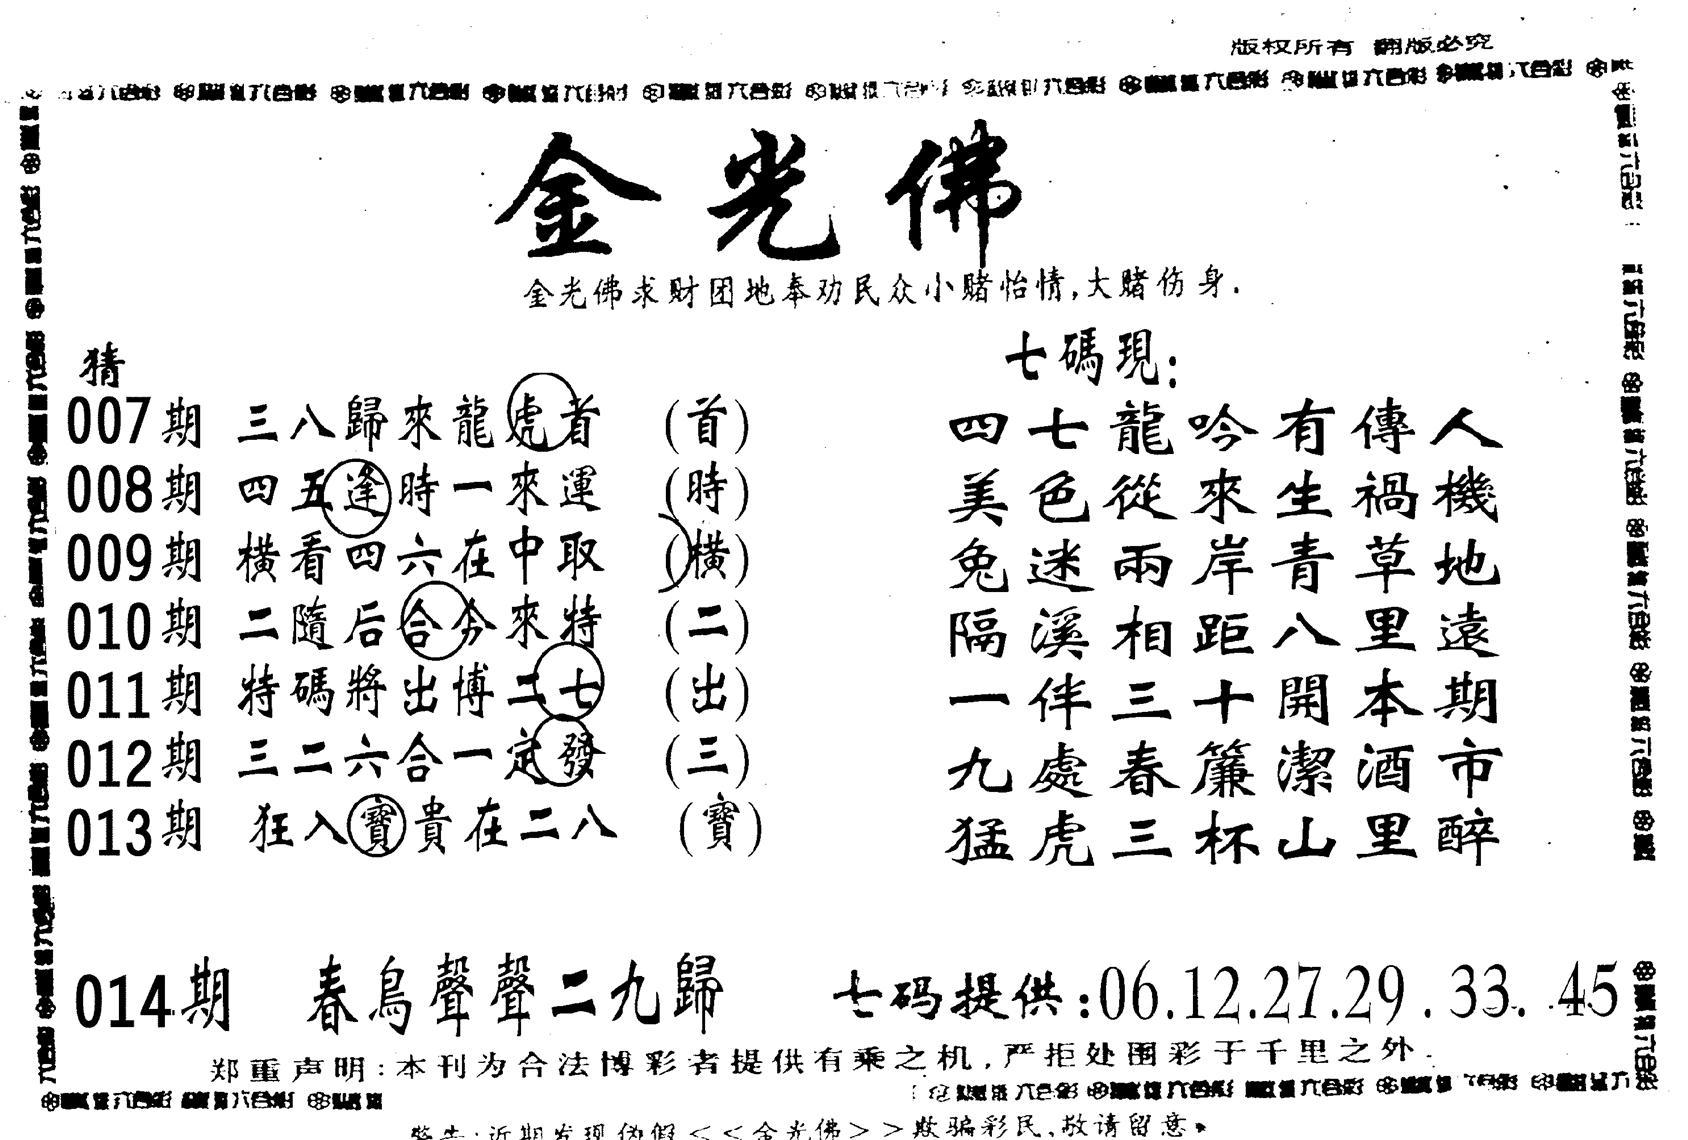 版权所有 翻版必究
金光佛
金光佛求财团地奉劝民众小赌怡情,大赌伤身.
猜
007期 三八歸來龍虎首 (首)
008期 四五逢時一來運 (時)
009期 橫看四六在中取 (橫)
010期 二隨后合夯來特 (二)
011期 特碼將出博二七 (出)
012期 三二六合一定發 (三)
013期 狂入寶貴在二八 (寶)
七碼現:
四七龍吟有傳人
美色從來生禍機
兔迷兩岸青草地
隔溪相距八里遠
一伴三十開本期
九處春簾潔酒市
猛虎三杯山里醉
014期 春鳥聲聲二九歸 七码提供:06.12.27.29.33.45
郑重声明:本刊为合法博彩者提供有乘之机,严拒处围彩于千里之外.
警告:近期发现伪假<<金光佛>>欺骗彩民,敬请留意.